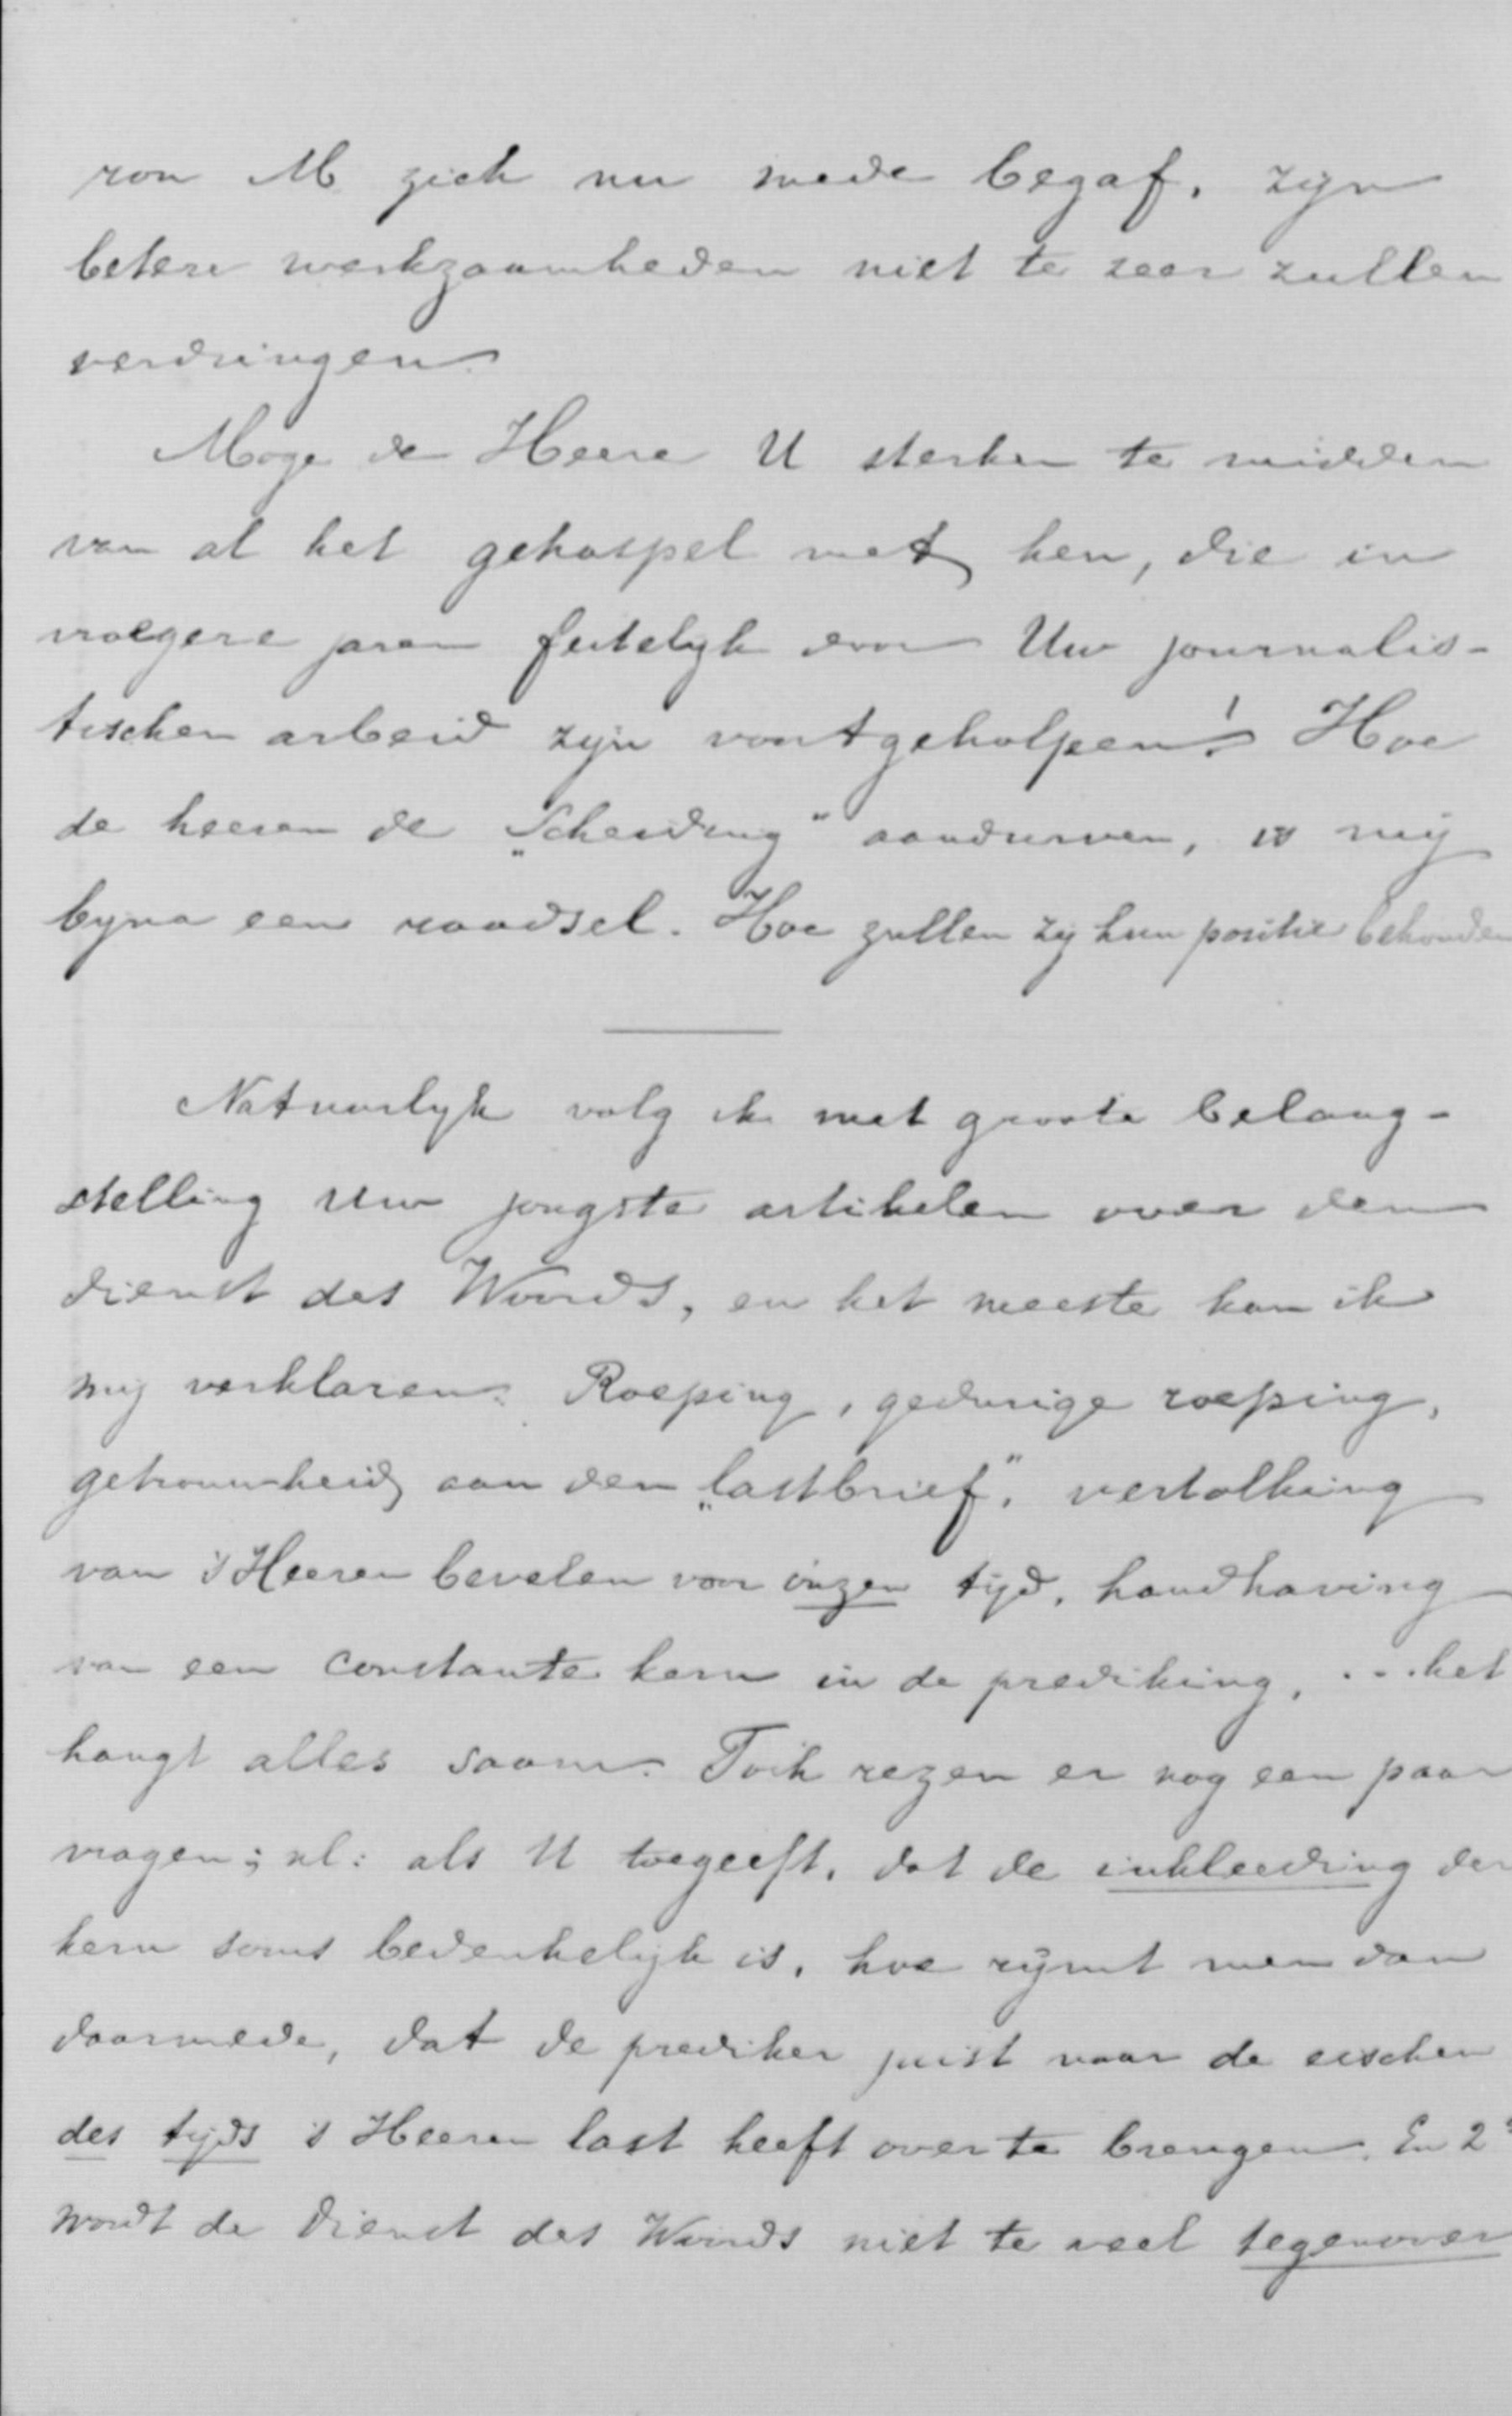 ron M zich nu mede begaf, zijn
betere werkzaamheden niet te zeer zullen
verdringen.
Moge de Heere U sterken te midden
van al het gehaspel met hen, die in
vroegere jaren feitelijk door Uw journalis-
tischen arbeid zijn voortgeholpen! Hoe
de heeren de „Scheiding" aandurven, is mij
bijna een raadsel. Hoe zullen zij hun positie behouden
Natuurlijk volg ik met groote belang-
stelling Uw jongste artikelen over den
dienst des Woords, en het meeste kan ik
mij verklaren. Roeping, gedurige roeping,
getrouwheid aan den „lastbrief", vertolking
van 's Heeren bevelen voor onzen tijd, handhaving
van een constante kern in de prediking, ... het
hangt alles saam. Toch rezen er nog een paar
vragen; nl: als U toegeeft, dat de inkleeding der
kern soms bedenkelijk is, hoe rijmt men dan
daarmede, dat de prediker juist naar de eischen
des tijds 's Heeren last heeft over te brengen. En 2e
wordt de Dienst des Woords niet te veel tegenover